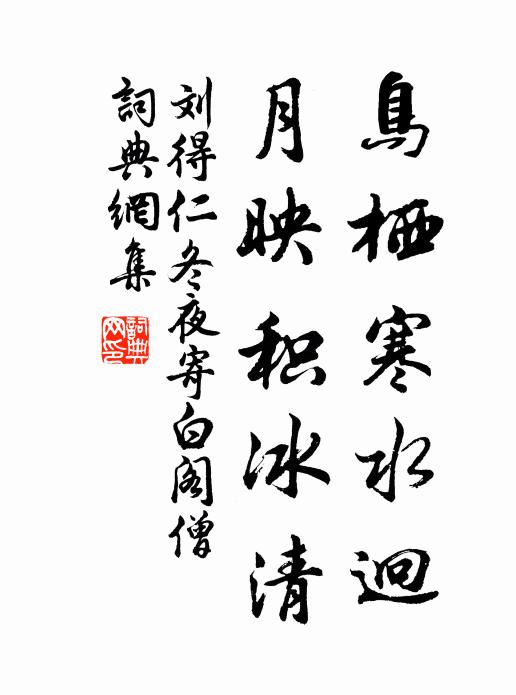 鳥栖寒水迥
月映积冰清
刘得仁冬夜寄白阁僧
詞典網集
詞典网印